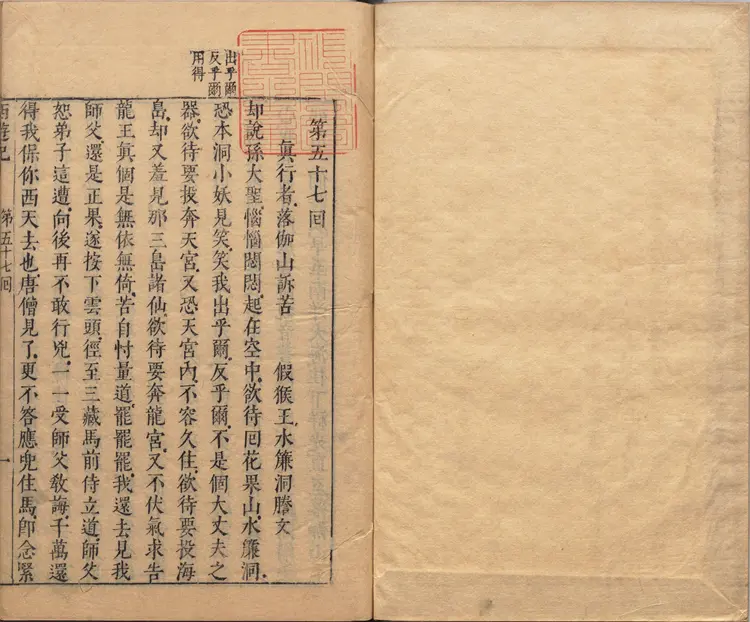 出乎爾
反乎爾
用得
第五十七囘
眞行者落伽山訴苦 假猴王水簾洞謄文
却說孫大聖惱惱悶悶起在空中欲待囘花果山水簾洞
恐本洞小妖見笑笑我出乎爾反乎爾不是個大丈夫之
器欲待要投奔天宮又恐天宮內不容久住欲待要投海
島却又羞見那三島諸仙欲待要奔龍宮又不伏氣求告
龍王眞個是無依無倚苦自忖量道罷罷罷我還去見我
師父還是正果遂按下雲頭徑至三藏馬前侍立道師父
恕弟子這遭向後再不敢行兇一一受師父敎誨千萬還
得我保你西天去也唐僧見了更不答應兜住馬卽念緊
西遊記 第五十七囘 一